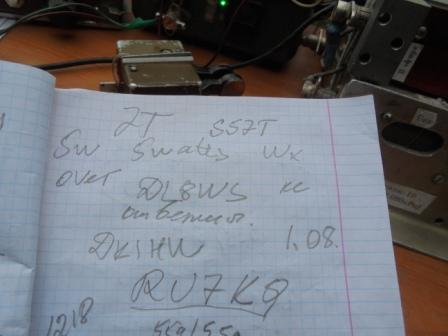 JT S57T
Sw Swates Wx
over DL8WS
ответил.
DK1HW 1.08.
RU7KQ
1218 559/559